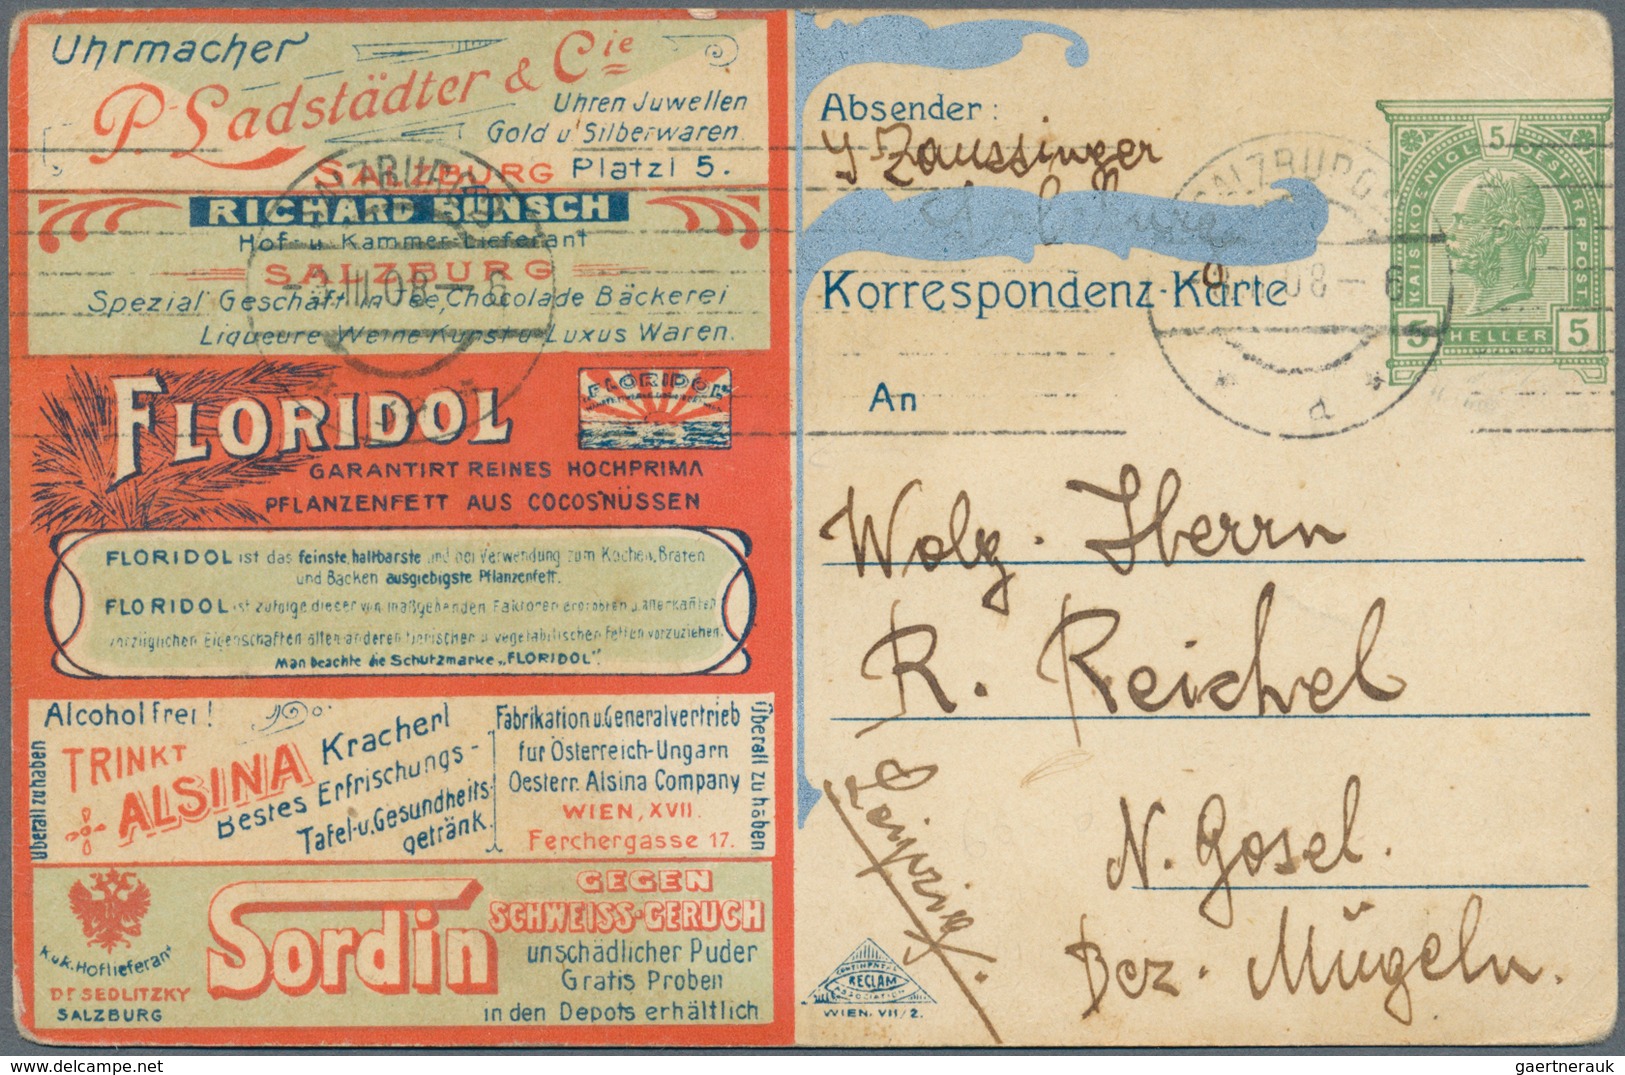 Uhrmacher
P. Ladstädter & Cie
Uhren Juwellen
Gold u. Silberwaren.
SALZBURG Platzl 5.
RICHARD BÜNSCH
Hof- u. Kammer-Lieferant
SALZBURG
Spezial Geschäft in Tee, Chocolade Bäckerei
Liqueure Weine Kunst u. Luxus Waren.
FLORIDOL
FLORIDOL
GARANTIRT REINES HOCHPRIMA
PFLANZENFETT AUS COCOSNÜSSEN
FLORIDOL ist das feinste, haltbarste und bei Verwendung zum Kochen, Braten
und Backen ausgiebigste Pflanzenfett.
FLORIDOL ist zufolge dieser von maßgebenden Faktoren erprobten u. anerkannten
vorzüglichen Eigenschaften allen anderen tierischen u. vegetabilischen Fetten vorzuziehen.
Man beachte die Schutzmarke „FLORIDOL".
Überall zu haben
Alcohol frei!
TRINKT
ALSINA
Kracherl
Bestes Erfrischungs-
Tafel-u.Gesundheits-
getränk.
Fabrikation u.Generalvertrieb
fur Österreich-Ungarn
Oesterr. Alsina Company
WIEN, XVII.
Ferchergasse 17.
Überall zu haben
k.u.k. Hoflieferant
Dr SEDLITZKY
SALZBURG
Sordin
GEGEN
SCHWEISS-GERUCH
unschädlicher Puder
Gratis Proben
in den Depots erhältlich
Absender:
Zaussinger
Korrespondenz-Karte
An
5
KAIS. KOENIGL. OESTERR. POST
5 HELLER 5
SALZBURG
08-6
SALZBURG
III 08-6
d
Wolg. Herrn
R. Reichel
N. Gosel.
Bez. Mügeln.
Leipzig.
CONTINENTAL
RECLAM
ASSOCIATION
WIEN. VII/2.
gaertnerauk